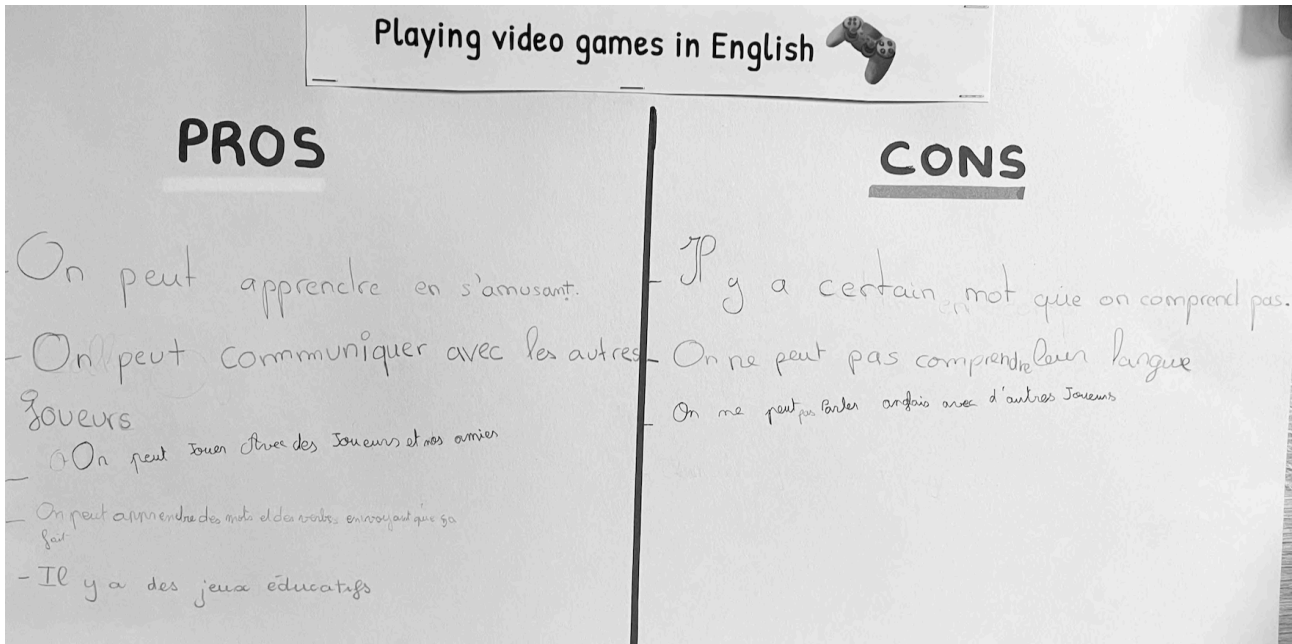 Playing video games in English
PROS
- On peut apprendre en s'amusant.
- On peut communiquer avec les autres
Joueurs
- On peut Jouer Avec des Joueurs et nos amier
- On peut apprendre des mots et des verbes en voyant que ça
fait
- Il y a des jeux éducatifs
CONS
- Il y a certain mot que on comprend pas.
- On ne peut pas comprendre leur langue
- On ne peut pas Parler anglais avec d'autres Joueurs